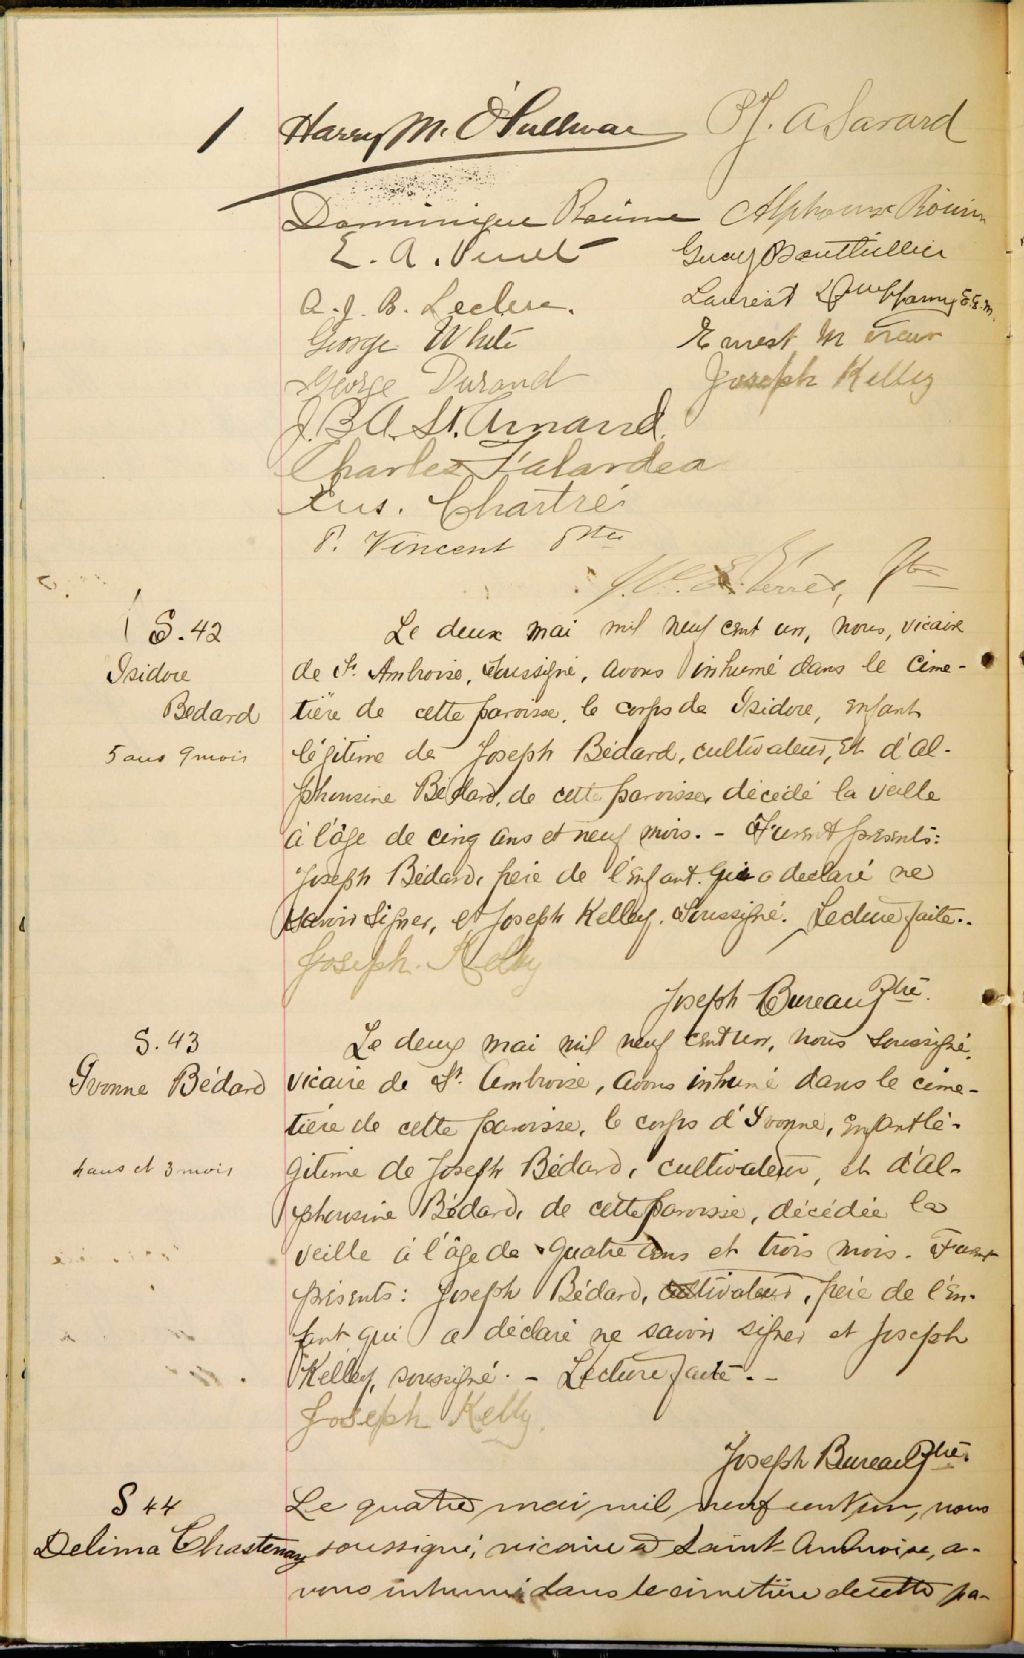 Harry M. O'Sullivan P. J. A Savard
Dominique Alphonse
E. A.
A. J. B. Leclerc. Lauréat
George White Ernest M
George Durand Joseph Kelley
J. B. A. St. Arnaud.
Charles Falardea
Eus. Chartré
P. Vincent Ptre
Ptre
S. 42
Isidore
Bedard
5 ans 9 mois
Le deux mai mil neuf cent un, nous, vicaire
de St. Ambroise, soussigné, avons inhumé dans le cime-
tière de cette paroisse, le corps de Isidore, enfant
légitime de Joseph Bédard, cultivateur, et d'Al-
phonsine Bédard, de cette paroisse, décédé la veille
à l'âge de cinq ans et neuf mois. - Furent présents:
Joseph Bédard, père de l'enfant qui a déclaré ne
savoir signer, et Joseph Kelley, soussigné. Lecture faite..
Joseph. Kelly
Joseph Bureau Ptre.
S. 43
Yvonne Bédard
4 ans et 3 mois
Le deux mai mil neuf cent un, nous soussigné,
vicaire de St. Ambroise, avons inhumé dans le cime-
tière de cette paroisse, le corps d'Yvonne, enfant lé-
gitime de Joseph Bédard, cultivateur, et d'Al-
phonsine Bédard, de cette paroisse, décédée la
veille à l'âge de quatre ans et trois mois. Furent
présents: Joseph Bédard, cultivateur, père de l'en-
fant qui a déclaré ne savoir signer et Joseph
Kelley, soussigné. - Lecture faite. -
Joseph Kelly.
Joseph Bureau Ptre.
S 44
Delima Chastenay
Le quatre mai mil neuf cent un, nous
soussigné, vicaire de Saint-Ambroise, a-
vons inhumé dans le cimetière de cette pa-